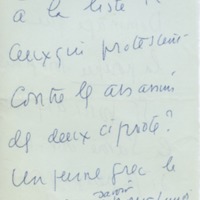 à la liste
ceux qui protestent
contre les assassins
de deux cipriote?
Un jeune grec le
savoir